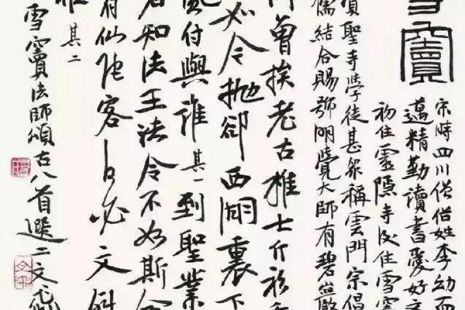 雪竇
宋時四川僧俗姓李幼而
邁精勤讀書愛好文
初住靈隱寺後住雪竇
資聖寺學徒甚衆稱雲門宗倡
儒結合賜號明覺大師有碧巖
曾挨老古推七斤衫
如今拋卻西湖裏下
風付與誰 其一 列聖叢
者知法王法令不如斯會
有仙陀客何必文殊
其二
雪竇法師頌古八首選二文